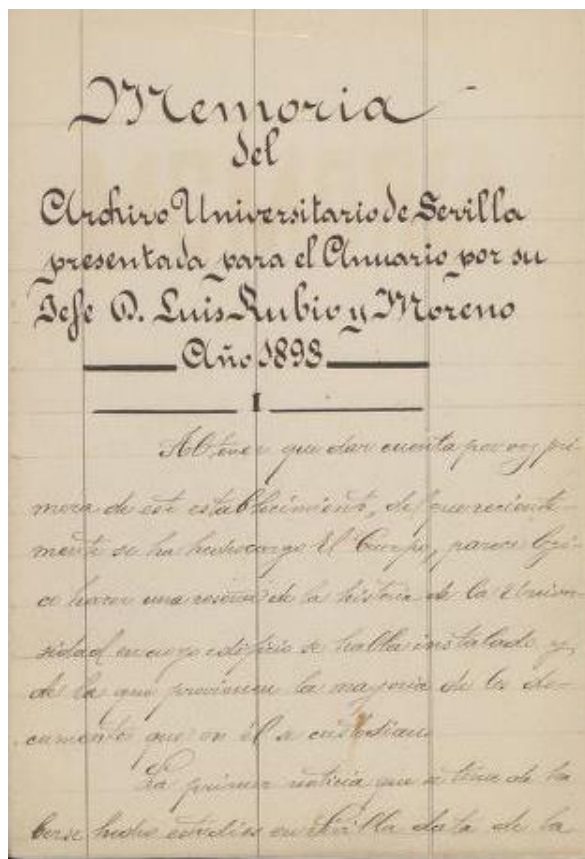 Memoria
del
Archivo Universitario de Sevilla
presentada para el Anuario por su
Jefe D. Luis Rubio y Moreno
Año 1898
I
Al tener que dar cuenta por vez pri-
mera de este establecimiento, del que reciente-
mente se ha hecho cargo el Cuerpo, parece lógi-
co hacer una reseña de la historia de la Univer-
sidad en cuyo edificio se halla instalado y
de la que provienen la mayoría de los do-
cumentos que en él se custodian.
La primer noticia que se tiene de ha
berse hecho estudios en Sevilla data de la